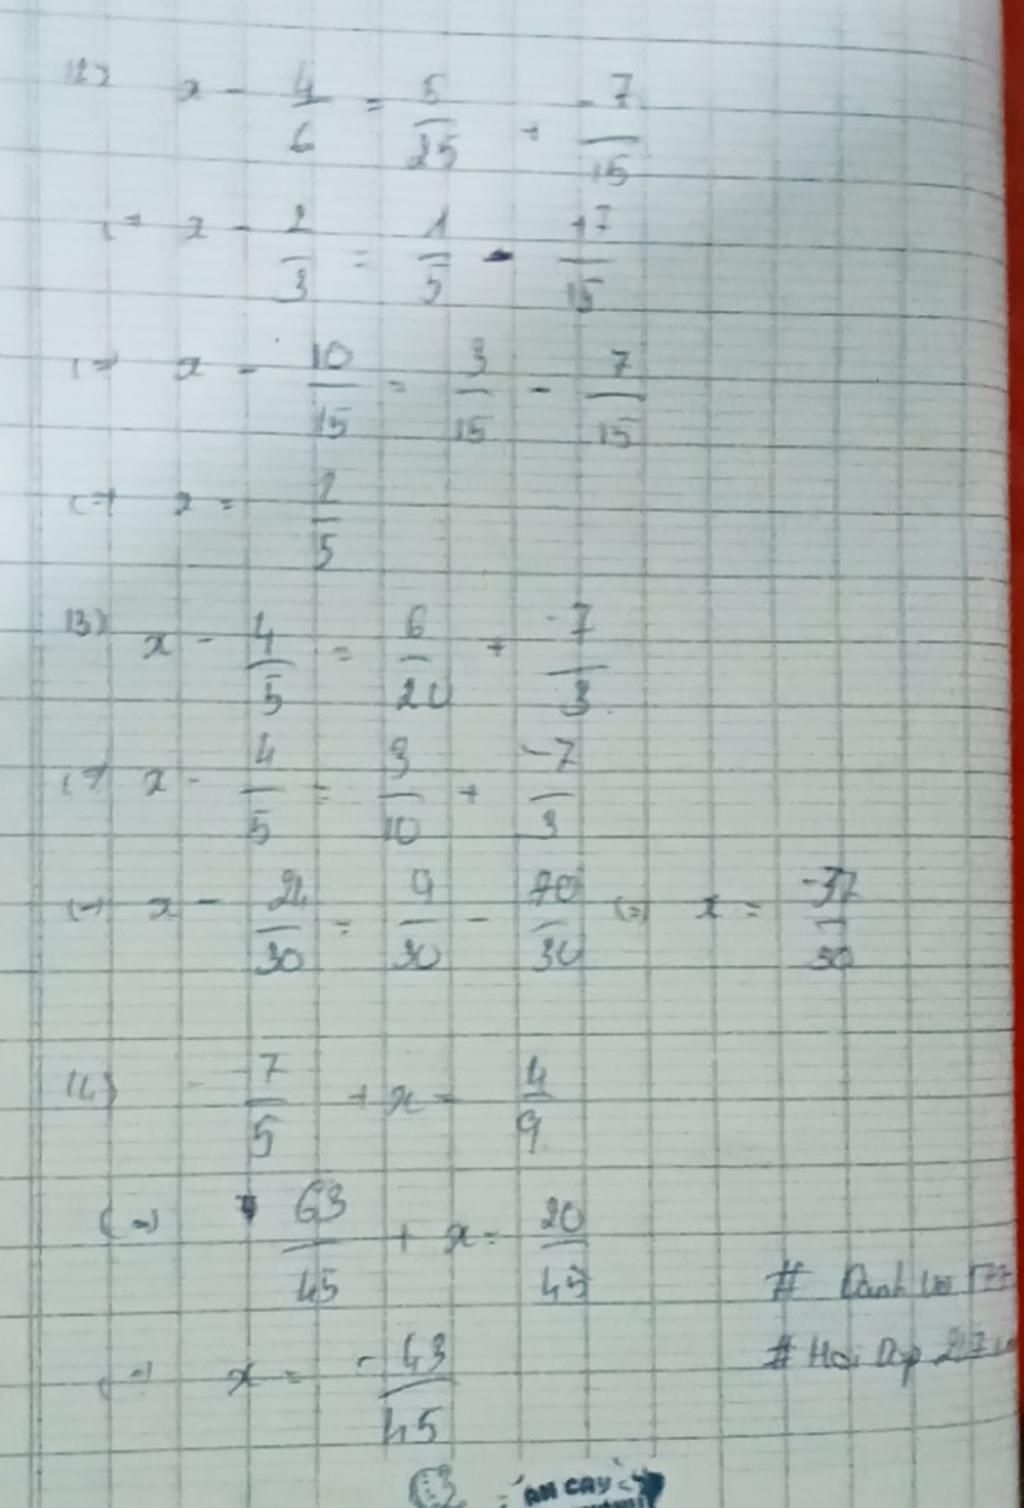 12) x - 4/6 = 5/25 + -7/15
(=) x - 2/3 = 1/5 - +7/15
(=) x - 10/15 = 3/15 - 7/15
(=) x = 2/5
13) x - 4/5 = 6/20 + -7/3
(=) x - 4/5 = 3/10 + -7/3
(=) x - 24/30 = 9/30 - 70/30 (=) x = -37/30
14) 7/5 + x = 4/9
(=) 63/45 + x = 20/45
(=) x = -43/45
#
# Hoi Dap 247
AM CAY